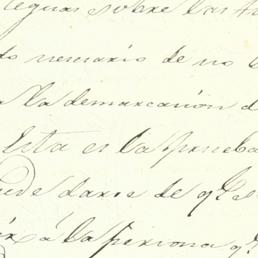 leguas sobre las
do necesario de no
a la demarcacion d
Esta es la prueba
uede darse de qe e
á la persona q